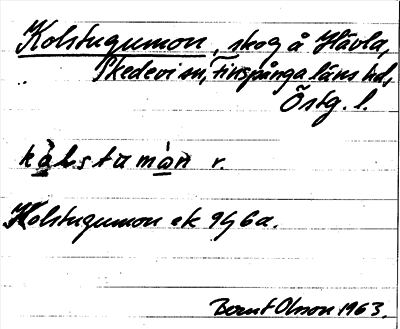 Kolstugumon, skog å Hävla,
Skedevi sn, Finspånga läns hd,
Östg. l.
kålstumån r.
Kolstugumon ek 9G6a.
Bernt Olsson 1963.